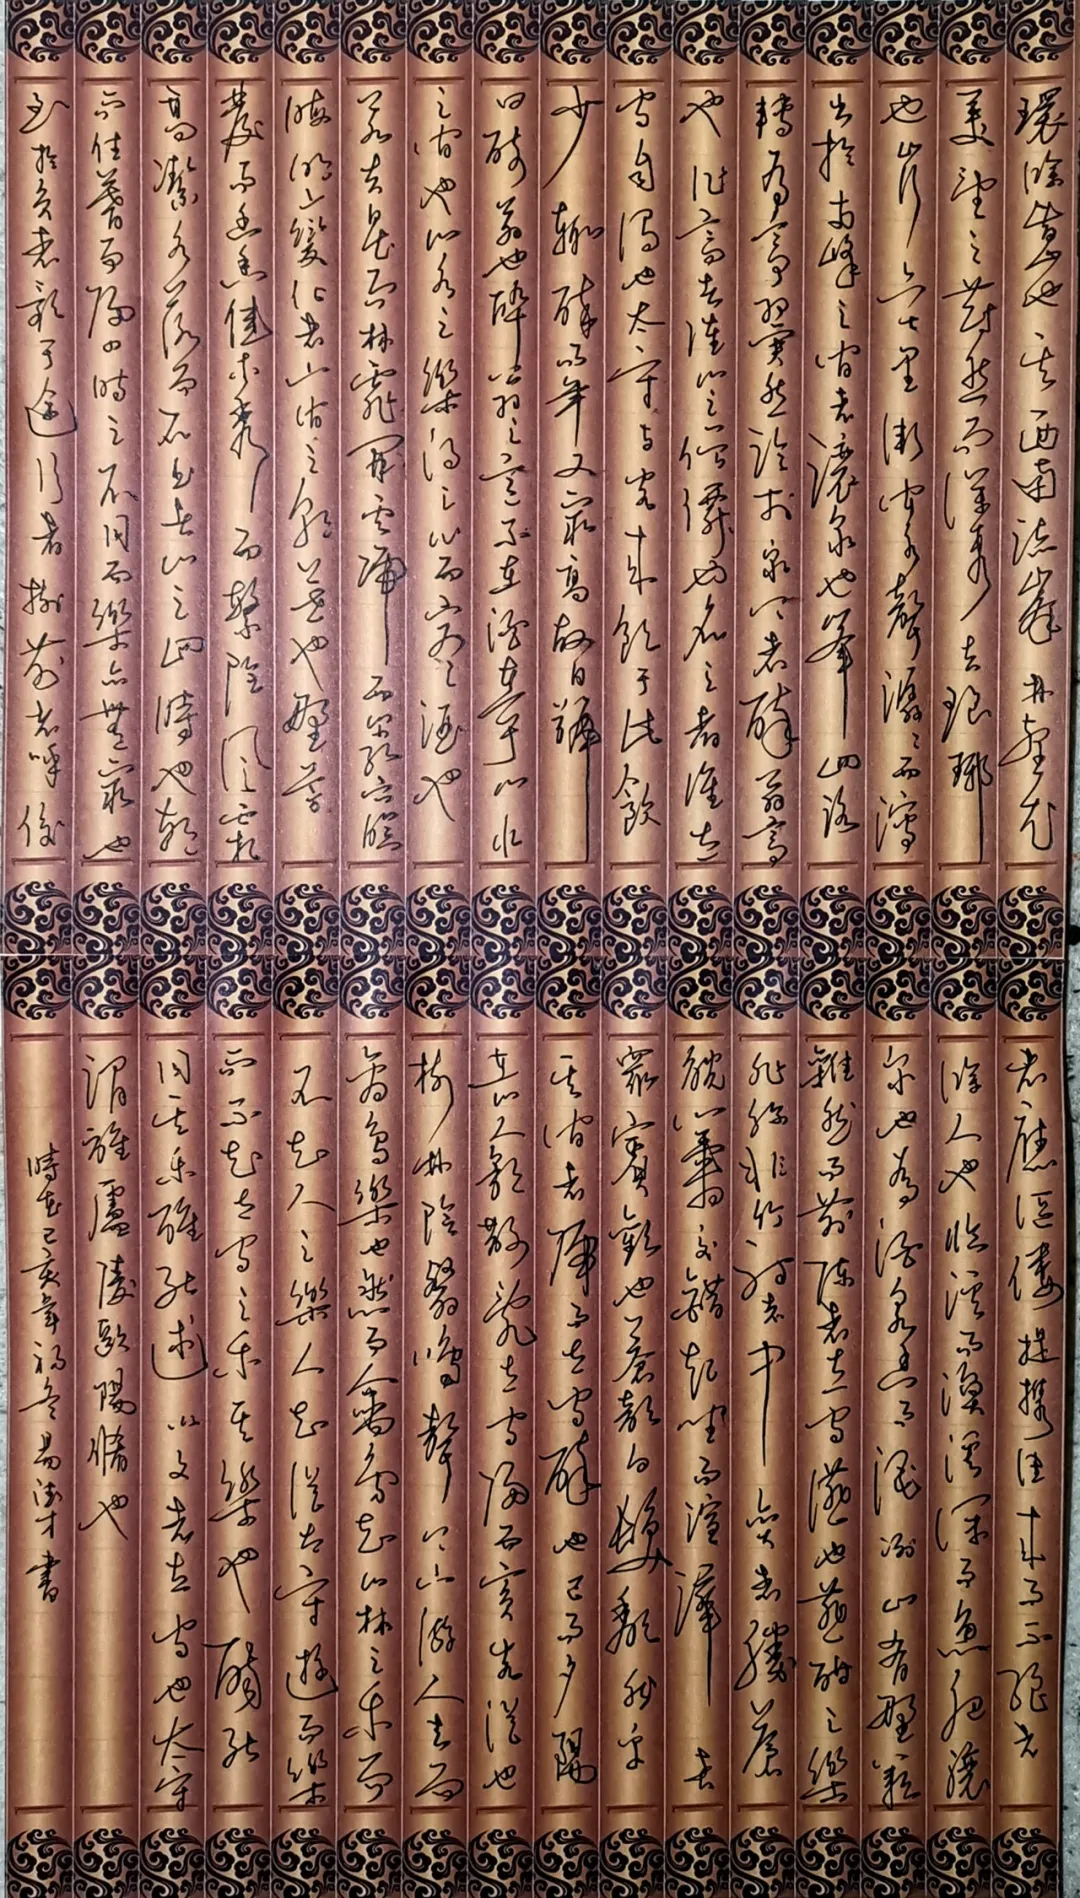 環滁皆山也其西南諸峯林壑尤
美望之蔚然而深秀者琅琊
也山行六七里漸聞水聲潺潺而瀉
出於兩峰之間者讓泉也峯回路
轉有亭翼然臨於泉上者醉翁亭
也作亭者誰山之僧僊也名之者誰太
守自謂也太守與客來飲于此飲
少輒醉而年又最高故自號
曰醉翁也醉翁之意不在酒在乎山水
之間也山水之樂得之心而寓之酒也
若夫日出而林霏開雲歸而岩穴暝
晦明變化者山間之朝暮也野芳
發而幽香佳木秀而繁陰風霜
高潔水落而石出者山之四時也朝
而往暮而歸四時之不同而樂亦無窮也
至於負者歌于途行者樹前者呼後
者應傴僂提攜往來而不絕者
滁人也臨溪而漁溪深而魚肥釀
泉也為酒泉香而酒洌山肴野蔌
雜然而前陳者太守宴也宴酣之樂
非絲非竹射者中奕者勝
觥籌交錯起坐而諠譁者
眾賓歡也蒼顏白髮頹然乎
其間者太守醉也已而夕陽
在山人影散亂太守歸而賓客從也
樹林陰翳鳴聲上下游人去而
禽鳥樂也然而禽鳥知山林之樂而
不知人之樂人知從太守遊而樂
而不知太守之樂其樂也醉能
同其樂醒能述以文者太守也太守
謂誰廬陵歐陽脩也
時在己亥年初冬易清才書